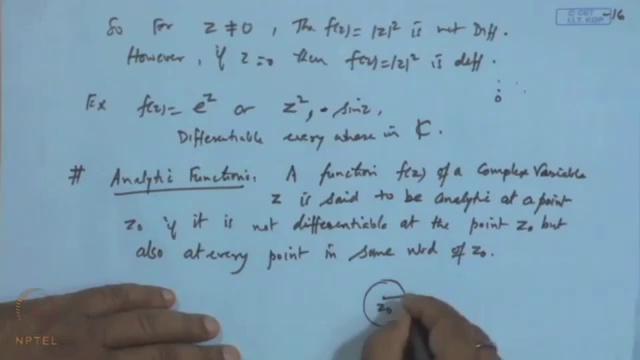 So For z ≠ 0, The f(z) = |z|² is not Diff.
However, if z = 0 Then f(z) = |z|² is diff.
0
Ex f(z) = e^z or z², sin z,
Differentiable every where in ℂ.
# Analytic Functions: A function f(z) of a Complex Variable
z is said to be analytic at a point
z₀ if it is not differentiable at the point z₀ but
also at every point in some nbd of z₀.
z₀
© CET
I.I.T. KGP
-16
NPTEL